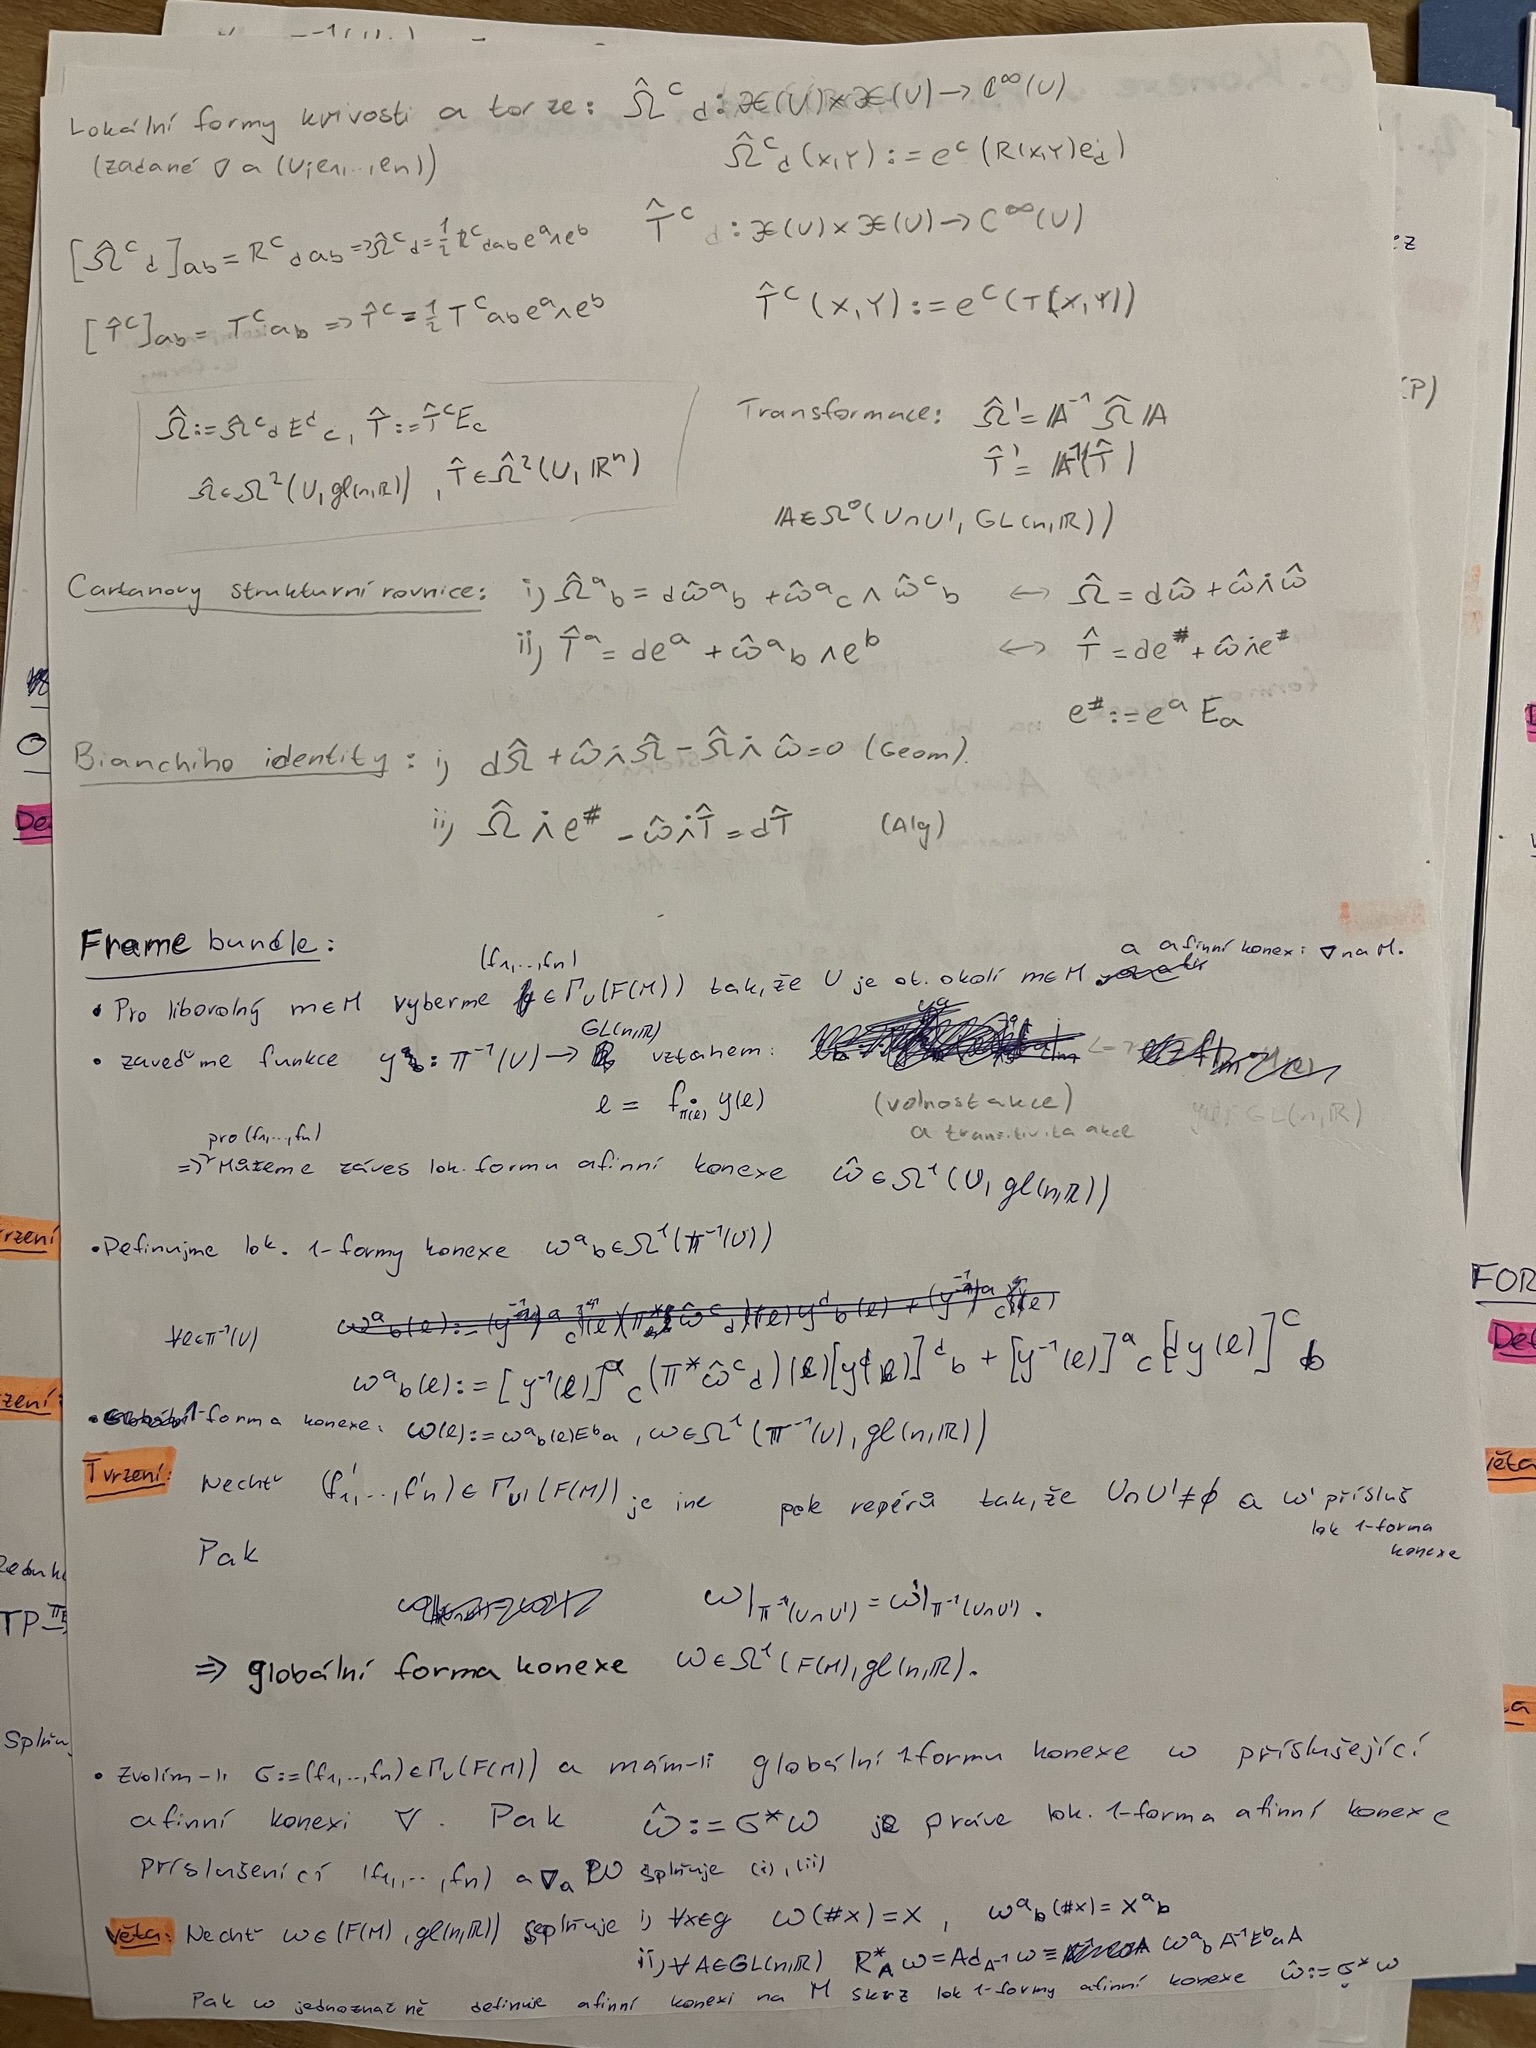 Lokální formy křivosti a torze: Ω̂ᶜ_d : 𝔛(U)×𝔛(U)→C^∞(U)
(zadané ∇ a (U;e₁,..,eₙ))
Ω̂ᶜ_d(X,Y) := eᶜ(R(X,Y)e_d)
[Ω̂ᶜ_d]_ab = Rᶜ_dab ⇒ Ω̂ᶜ_d = ½Rᶜ_dab eᵃ∧eᵇ
T̂ᶜ : 𝔛(U)×𝔛(U)→C^∞(U)
[T̂ᶜ]_ab = Tᶜ_ab ⇒ T̂ᶜ = ½Tᶜ_ab eᵃ∧eᵇ
T̂ᶜ(X,Y) := eᶜ(T(X,Y))
Ω̂ := Ω̂ᶜ_d Eᵈ_c, T̂ := T̂ᶜE_c
Ω̂∈Ω²(U,gl(n,ℝ)), T̂∈Ω̂²(U,ℝⁿ)
Transformace: Ω̂' = 𝔸⁻¹Ω̂𝔸
T̂' = 𝔸⁻¹(T̂)
𝔸∈Ω⁰(U∩U', GL(n,ℝ))
Cartanovy strukturní rovnice: i) Ω̂ᵃ_b = dω̂ᵃ_b + ω̂ᵃ_c ∧ ω̂ᶜ_b ↔ Ω̂ = dω̂ + ω̂∧̇ω̂
ii) T̂ᵃ = deᵃ + ω̂ᵃ_b ∧eᵇ ↔ T̂ = de^# + ω̂∧̇e^#
e^# := eᵃ E_a
Bianchiho identity: i) dΩ̂ + ω̂∧̇Ω̂ - Ω̂∧̇ω̂ = 0 (Geom).
ii) Ω̂∧̇e^# - ω̂∧̇T̂ = dT̂ (Alg)
Frame bundle:
• Pro liborolný m∈M vyberme (f₁,..,fₙ) ∈Γ_U(F(M)) tak, že U je ot. okolí m∈M a afinní konexi ∇ na M.
• zaveďme funkce y : π⁻¹(U) → GL(n,ℝ) vztahem:
e = f_π(e) · y(e) (volnost akce)
a tranzitivita akce
GL(n,ℝ)
⇒ pro (f₁,..,fₙ) Můžeme záves lok. formu afinní konexe ω̂∈Ω¹(U,gl(n,ℝ))
• Definujme lok. 1-formy konexe ωᵃ_b∈Ω¹(π⁻¹(U))
∀e∈π⁻¹(U)
ωᵃ_b(e) := [y⁻¹(e)]ᵃ_c (π*ω̂ᶜ_d)(e)[y(e)]ᵈ_b + [y⁻¹(e)]ᵃ_c [dy(e)]ᶜ_b
• 1-forma konexe: ω(e) := ωᵃ_b(e)Eᵇ_a, ω∈Ω¹(π⁻¹(U),gl(n,ℝ))
Tvrzení: Nechť (f'₁,..,f'ₙ)∈Γ_U'(F(M)) je iné pole repérů tak, že U∩U'≠∅ a ω' přísluš
lok 1-forma
konexe
Pak
ω|_π⁻¹(U∩U') = ω'|_π⁻¹(U∩U').
⇒ globální forma konexe ω∈Ω¹(F(M),gl(n,ℝ).
• Zvolím-li σ:=(f₁,..,fₙ)∈Γ_U(F(M)) a mám-li globální 1formu konexe ω příslušející
afinní konexi ∇. Pak ω̂ := σ*ω je práve lok. 1-forma afinní konexe
příslušenící (f₁,..,fₙ) a ∇ a ω splňuje (i),(ii)
Věta: Nechť ω∈(F(M),gl(n,ℝ)) splňuje i) ∀x∈g ω(#x)=x, ωᵃ_b(#x)=xᵃ_b
ii) ∀A∈GL(n,ℝ) R*_A ω = Ad_A⁻¹ ω ≡ ωᵃ_b A⁻¹Eᵇ_a A
Pak ω jednoznačně definuje afinní konexi na M skrz lok 1-formy afinní konexe ω̂:=σ*ω